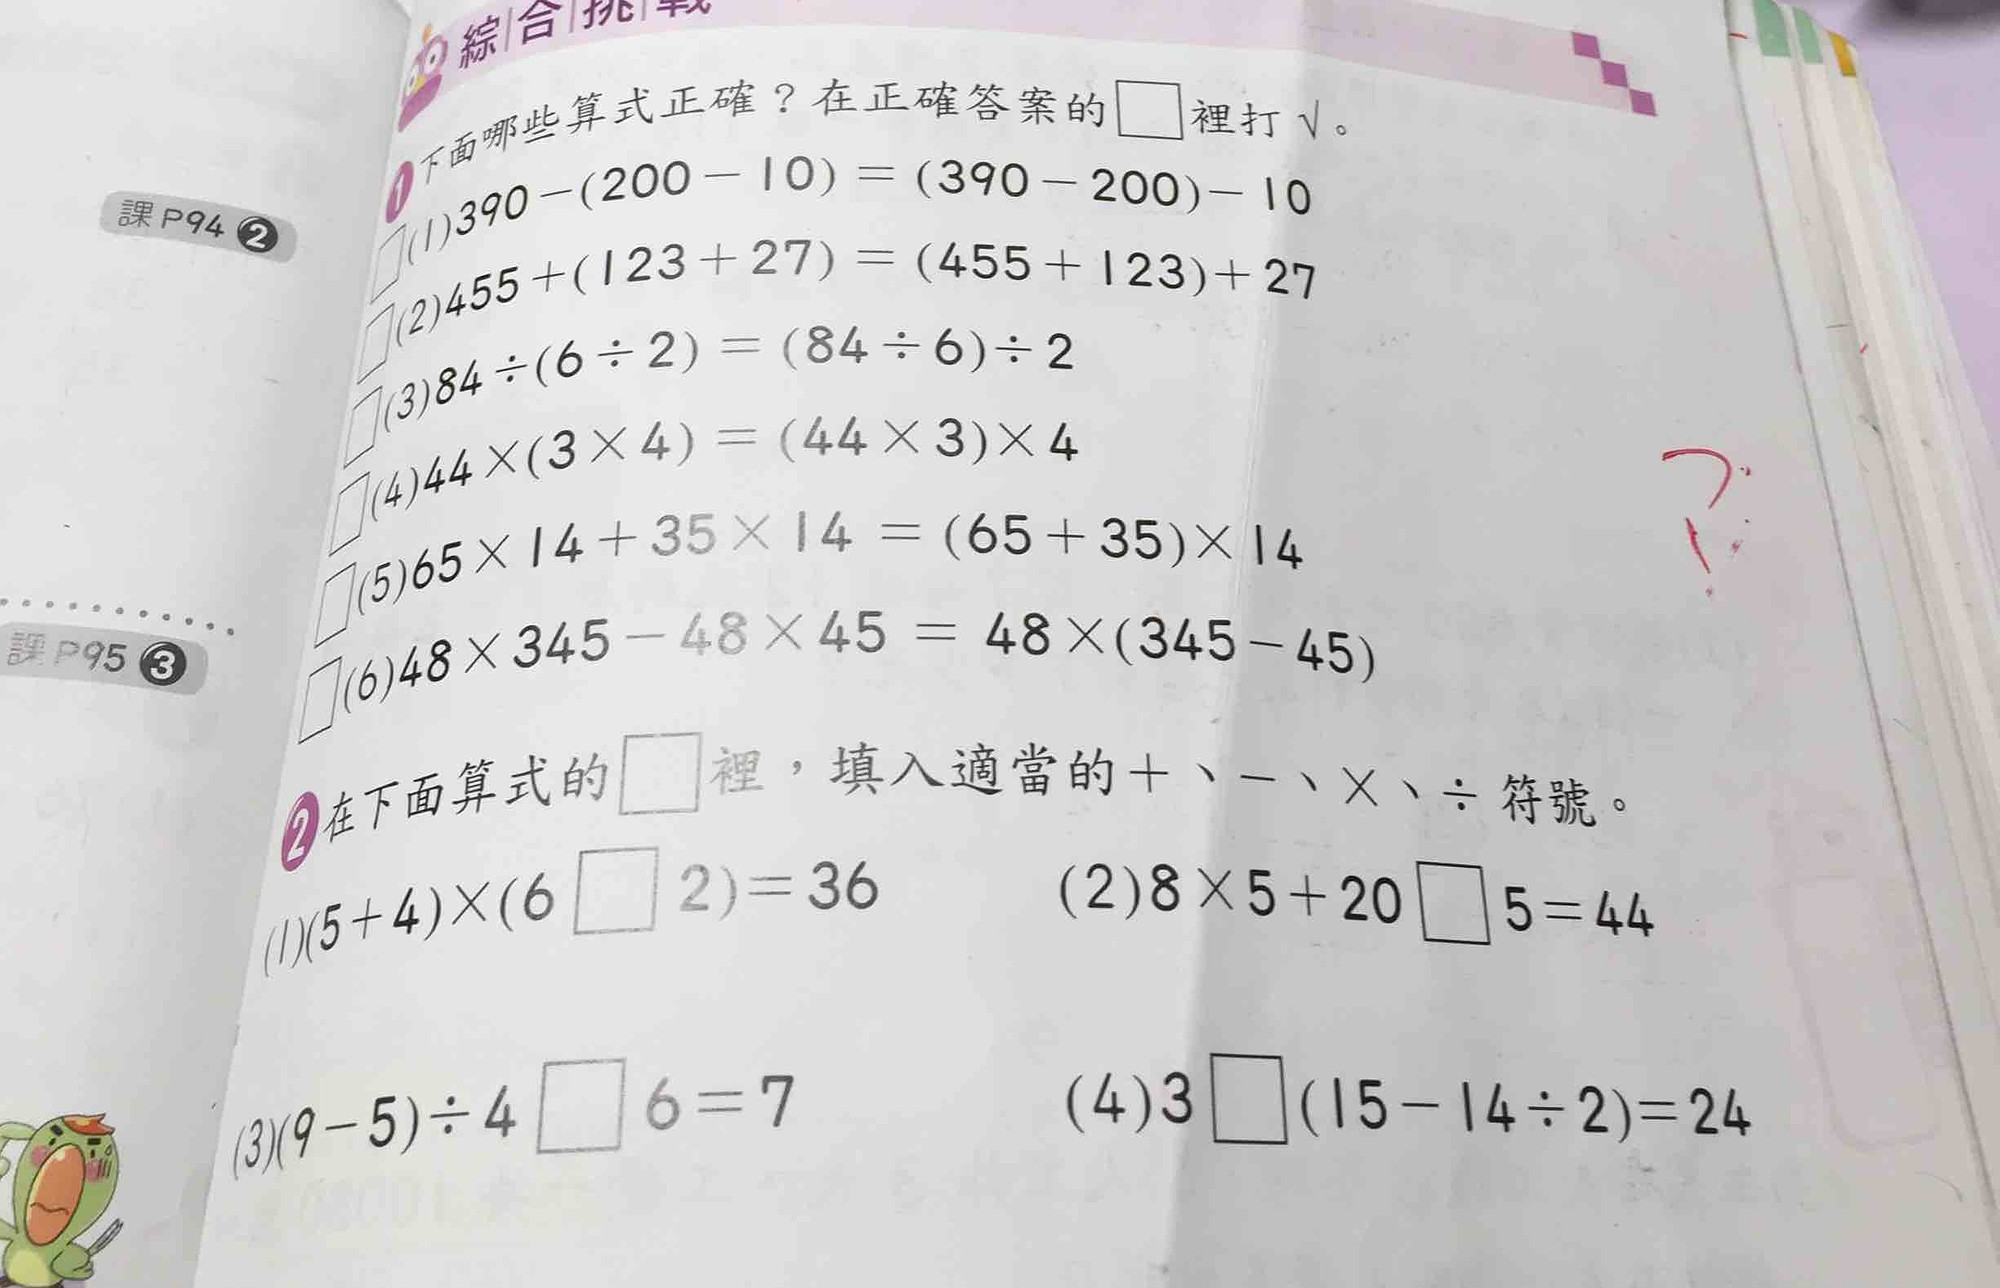 綜合挑戰
課P94 ❷
❶下面哪些算式正確？在正確答案的□裡打√。
□(1)390－(200－10)＝(390－200)－10
□(2)455＋(123＋27)＝(455＋123)＋27
□(3)84÷(6÷2)＝(84÷6)÷2
□(4)44×(3×4)＝(44×3)×4
□(5)65×14＋35×14＝(65＋35)×14
□(6)48×345－48×45＝48×(345－45)
課P95 ❸
❷在下面算式的□裡，填入適當的＋、－、×、÷符號。
(1)(5＋4)×(6□2)＝36
(2)8×5＋20□5＝44
(3)(9－5)÷4□6＝7
(4)3□(15－14÷2)＝24